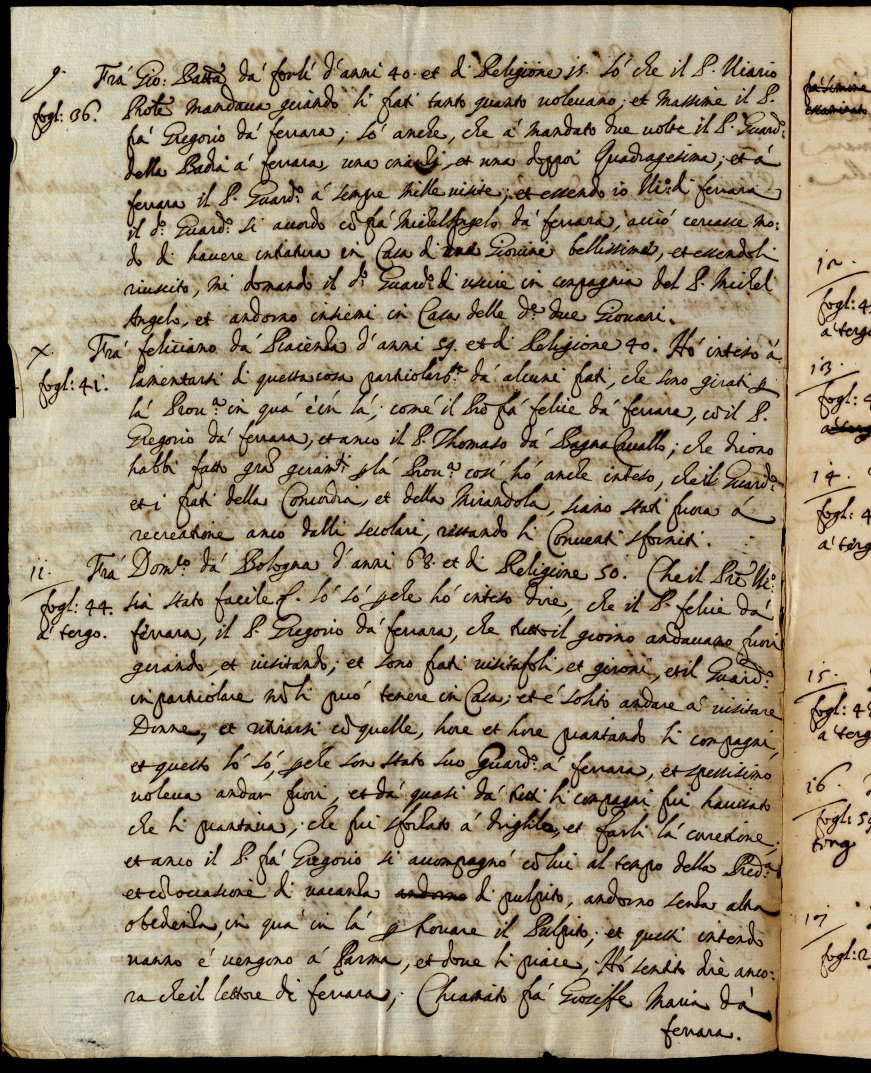 9. Frà Gio: Batta dà forlì d'anni 40. et di Religione 15. Sò che il P. Vicario
fogl: 36. mandaua girando li frati tanto quanto uoleuano; et massime il P.
frà Gregorio dà ferrara; sò anche, che à mandato due uolte il P. Guard:º
della Badia à ferrara, una et una doppoi Quadragesima; et à
ferrara il P. Guard:º à sempre mille uisite; et essendo io Vic:º di ferrara
il d:º Guard:º si accordò cõ frà Michel Angelo dà ferrara, acciò cercasse mo:
do di hauere intratura in Casa di una Giouine bellissima, et essendoli
riuscito, mi domandò il d:º Guard:º di uscire in conpagnia del P. Michel
Angelo, et andorno insiemi in Casa delle d:e due Giouani.
X. Frà feliciano dà Piacenza d'anni 59. et di Religione 40. Hò inteso à
fogl: 41. lamentarsi di questa cosa particolarm:te dà alcuni frati, che sono girati p
là Prou:a in quà è in là; comé il Prõ frà felice dà ferrara, cõ il P.
Gregorio dà ferrara, et anco il P. Thomaso dà Bagna Cauallo; che dicono
habbi fatto grã giramti p là Prou:a così hò anche inteso, che il Guard:º
et i frati della Concordia, et della Mirandola, siano stati fuora à
recreatione anco dalli secolari, restando li Conuenti sforniti.
11. Frà Dom:co dà Bologna d'anni 68. et di Religione 50. Che il Prẽ Vic:º
fogl: 44. sia stato facile &. Lò sò pche hò inteso dire, che il P. felice dà
à tergo. ferrara, il P. Gregorio dà ferrara, che tutto il giorno andauano fuori
girando, et uisitando; et sono frati uisitafoli, et gironi, et il Guard:º
in particolare nõ li può tenere in Casa; et è solito andare à uisitare
Donne, et ritirarsi cõ quelle, hore et hore piantando li conpagni,
et questo lò sò, pche son stato suo Guard:º à ferrara, et spessisimo
uoleua andar fuori, et dà quasi dà tutti li conpagni fui hauisato
che li piantaua, che fui sforzato à et farli là corretione;
et anco il P. frà Gregorio si accompagnò cõ lui al tempo della Pred:a
et cõ occasione di uacanza andorno di pulpito, andorno senza altra
obedienza, in quà in là p trouare il Pulpito; et questi intendo
uanno è uengono à Parma, et doue li piace; Hò sentito dire anco:
ra che il lettore di ferrara; Chiamato frà Gioseffe Maria dà
ferrara.
fra Simone
essaminato
12.
fogl: 4
à tergo
13.
fogl: 4
14.
fogl: 4
à terg
15.
fogl: 4
à terg
16.
fogl: 5
terg
17
fogl: 2